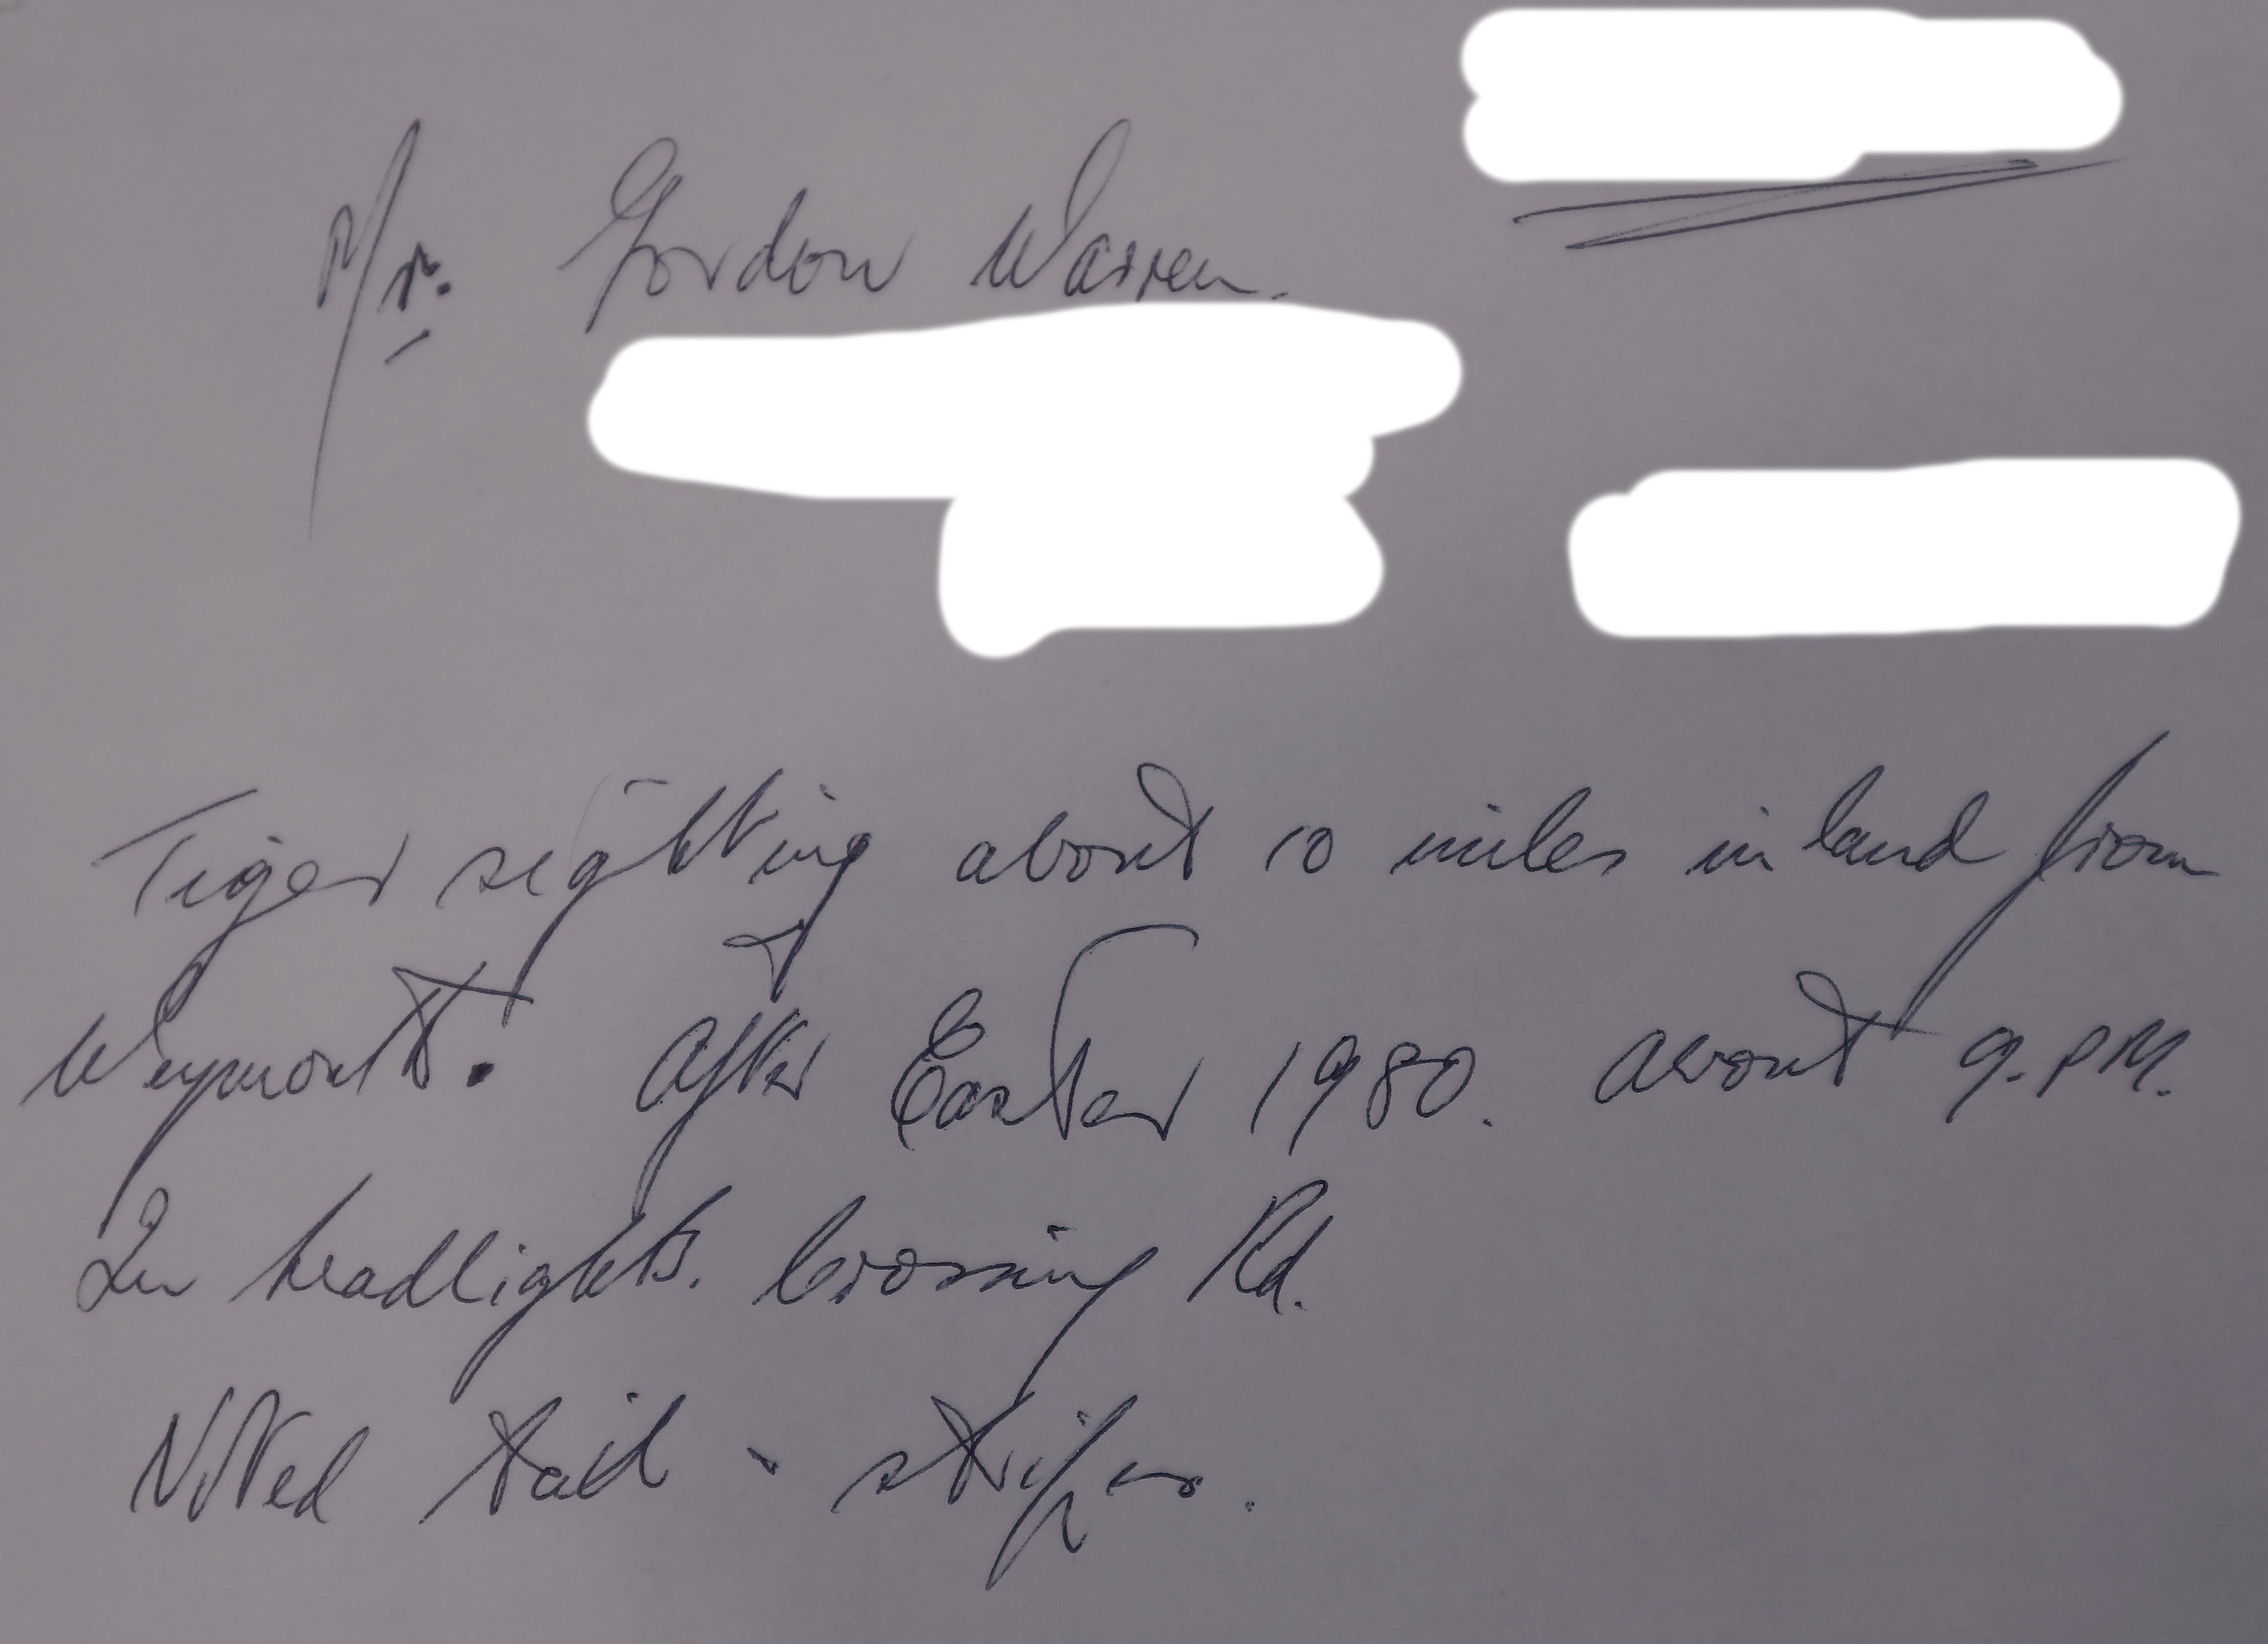 Mr. Gordon Warren.
Tiger sighting about 10 miles inland from
Weymouth. After Easter 1980. about 9. PM.
In headlights. Crossing Rd.
Noted tail - stripes.